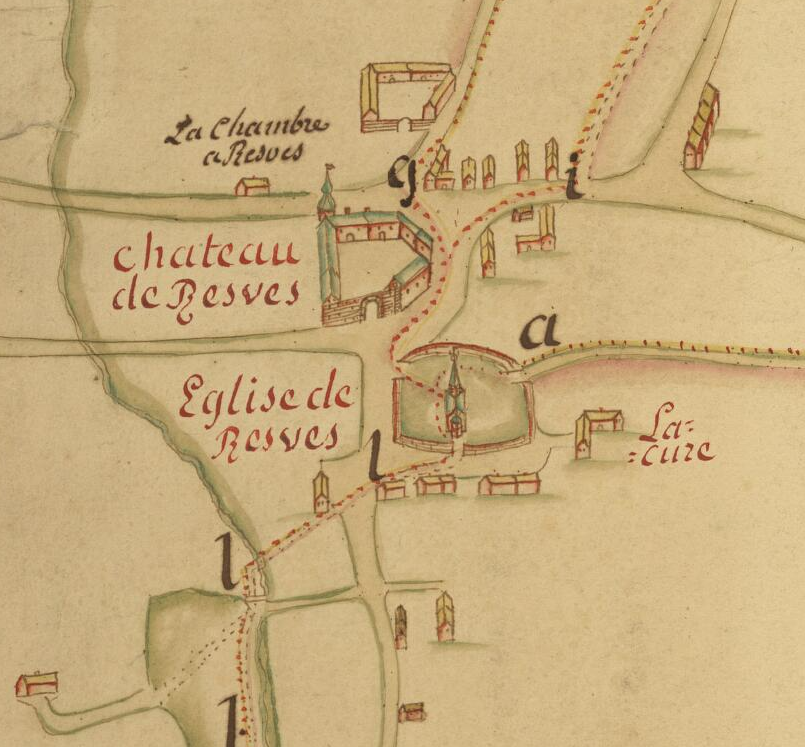 La Chambre
a Resves
g
i
chateau
de Resves
a
Eglise de
Resves
La-
=cure
l
l
l